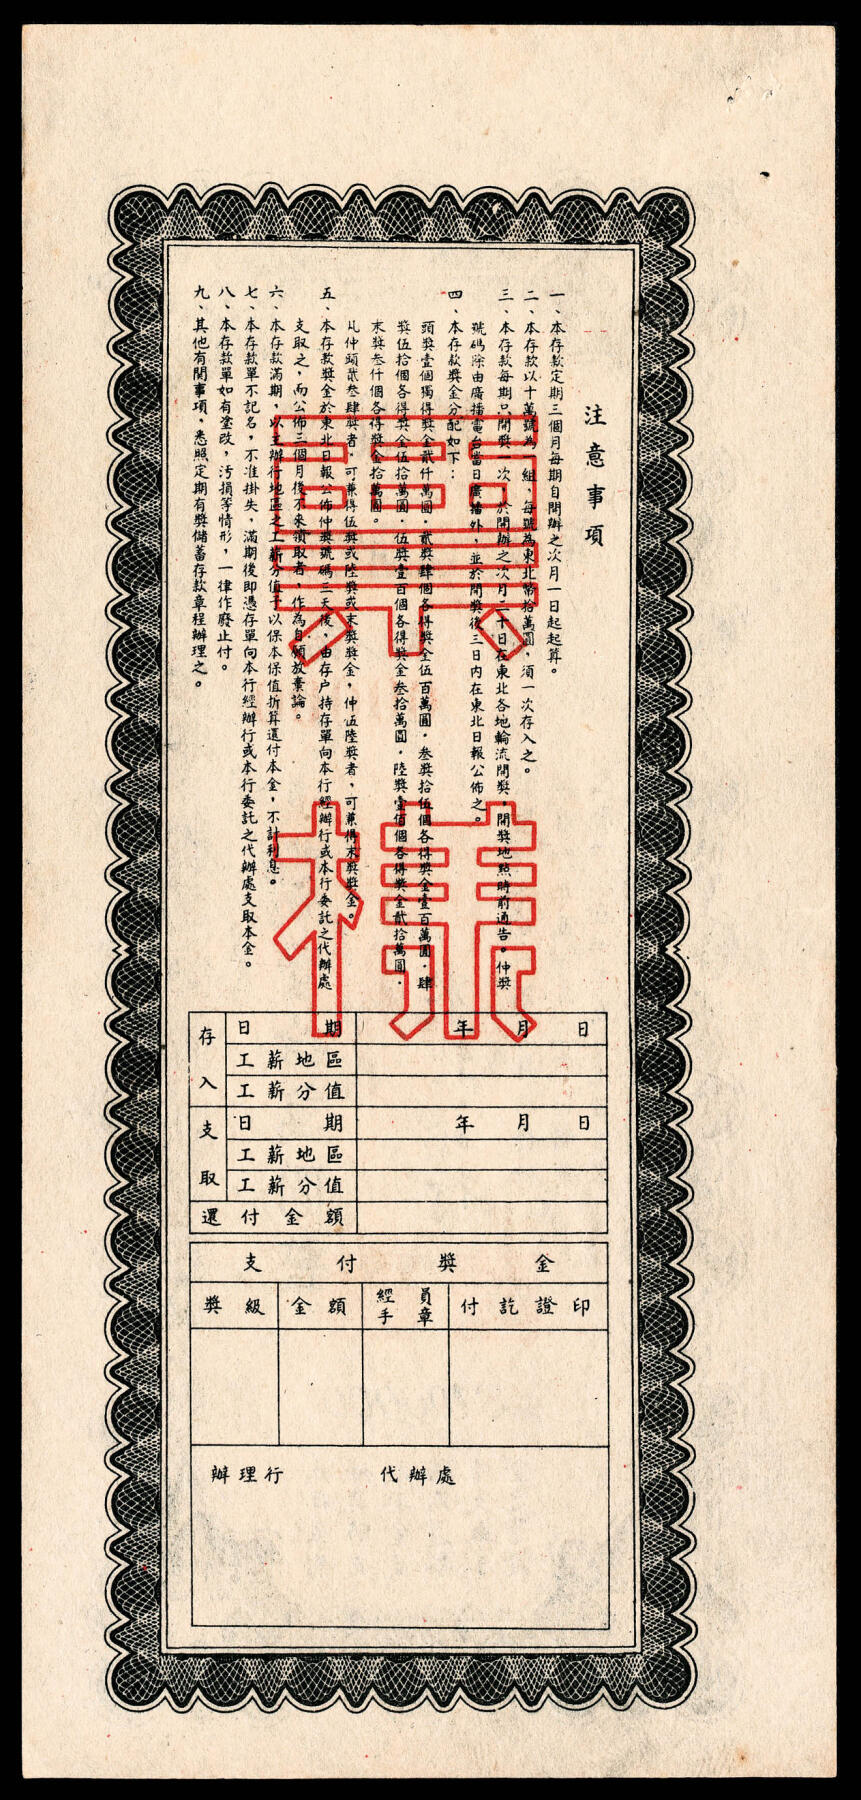 注意事項
一、本存款定期三個月每期自開辦之次月一日起起算。
二、本存款以十萬號為一組，每號為東北幣拾萬圓，須一次存入之。
三、本存款每期只開獎一次，於開辦之次月二十日在東北各地輪流開獎，開獎地點時前通告。仲獎
號碼除由廣播電台當日廣播外，並於開獎後三日內在東北日報公佈之。
四、本存款獎金分配如下：
頭獎壹個獨得獎金貳仟萬圓．貳獎肆個各得獎金伍百萬圓．叁獎拾伍個各得獎金壹百萬圓．肆
獎伍拾個各得獎金伍拾萬圓．伍獎壹百個各得獎金叁拾萬圓．陸獎壹佰個各得獎金貳拾萬圓．
末獎叁仟個各得獎金拾萬圓。
凡仲頭貳叁肆獎者，可兼得伍獎或陸獎或末獎獎金，仲伍陸獎者，可兼得末獎獎金。
五、本存款獎金於東北日報公佈仲獎號碼三天後，由存户持存單向本行經辦行或本行委託之代辦處
支取之，而公佈三個月後不來領取者，作為自願放棄論。
六、本存款滿期，以立辦行地區之工薪分值予以保本保值折算還付本金，不計利息。
七、本存款單不記名，不准掛失，滿期後即憑存單向本行經辦行或本行委託之代辦處支取本金。
八、本存款單如有塗改，污損等情形，一律作廢止付。
九、其他有関事項，悉照定期有獎儲蓄存款章程辦理之。
票樣
存入
日期 年 月 日
工薪地區
工薪分值
支取
日期 年 月 日
工薪地區
工薪分值
還付金額
支付獎金
獎級 金額 經手員章 付訖證印
辦理行 代辦處